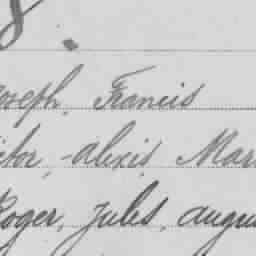 8.
oseph, Francis
ictor, -alexis, Mar
Roger, Jules, augu